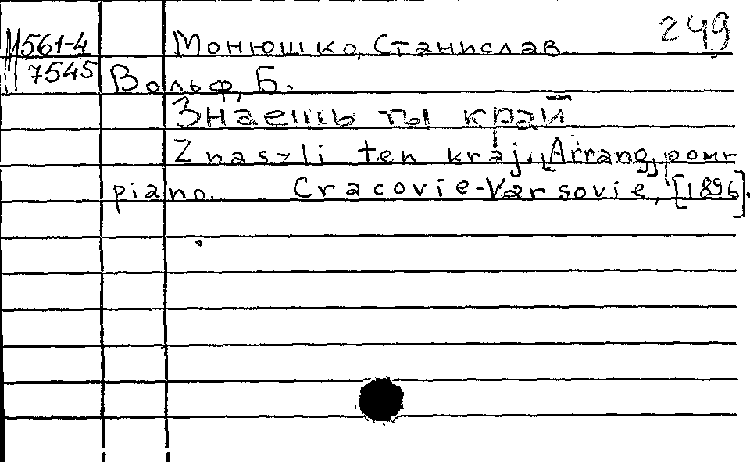 М561-4 Монюшко, Станислав 249
7545 Вольф, Б.
Знаешь ты край
Znaszli ten kraj. [Arrang] pour
piano. Cracovie-Varsovie, [1896].